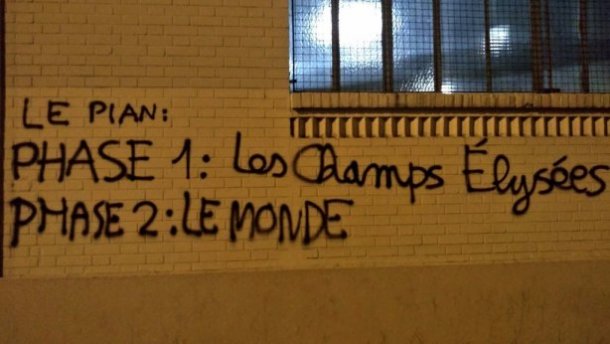 LE PLAN:
PHASE 1: Les Champs Élysées
PHASE 2: LE MONDE